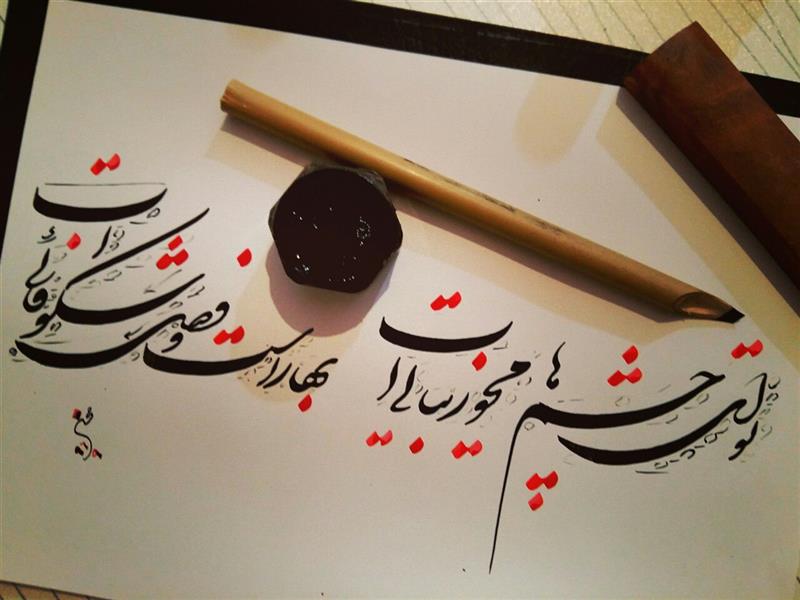 تو ای چشم ها محو زیبایی ات
بهار است و فصل شکوفایی ات